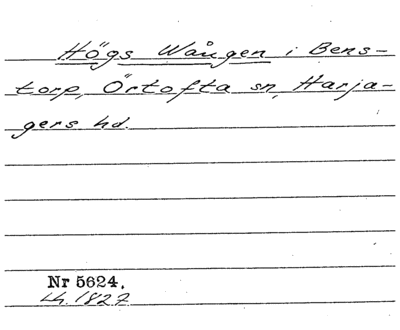 Högs Wången i Bens-
torp, Örtofta sn, Harja-
gers hd.
Nr 5624.
Lh. 1827